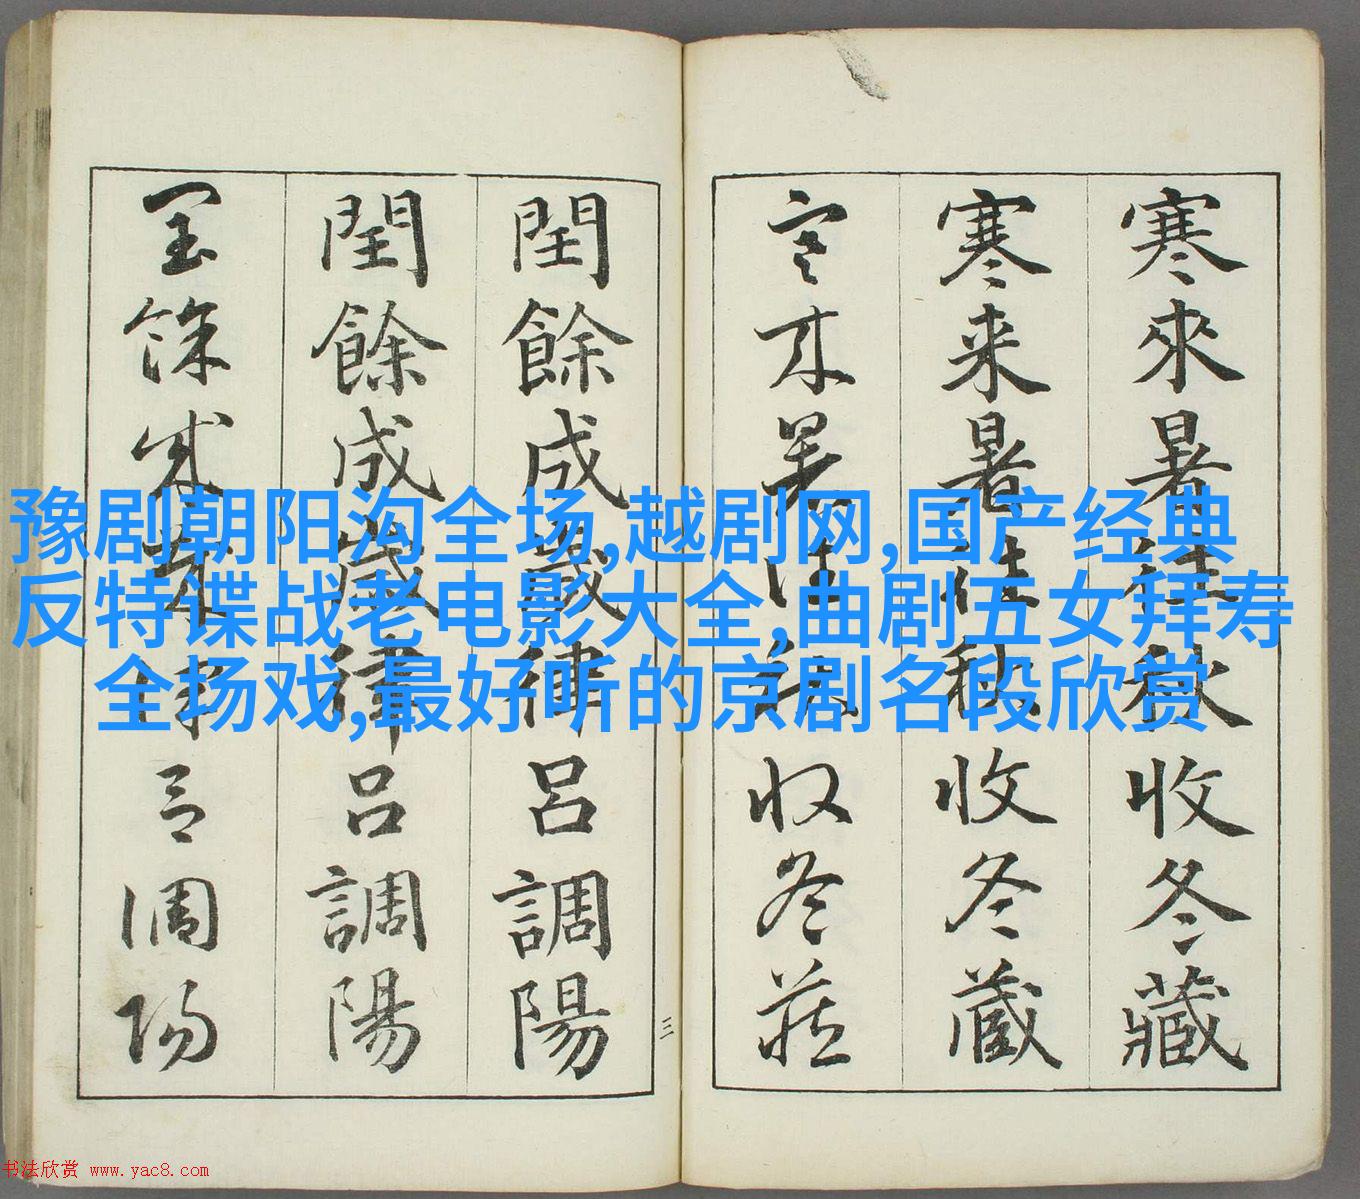 寒來暑往秋收冬藏
寒来暑往秋收冬藏
寒来暑往秋收冬藏
閏餘成歲律呂調陽
閏餘成歲律呂調陽
閏餘成歲律呂調陽
三
豫剧朝阳沟全场,越剧网,国产经典
反特谍战老电影大全,曲剧五女拜寿
全场戏,最好听的京剧名段欣赏
书法欣赏 www.yac8.com